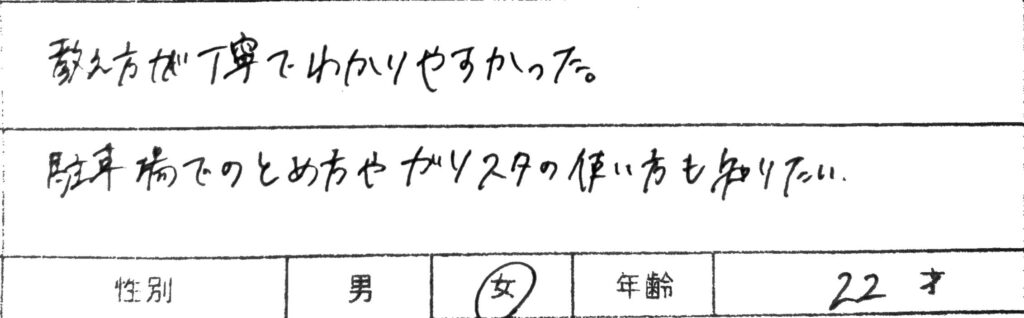 教え方が丁寧でわかりやすかった。
駐車場でのとめ方やガソリスタの使い方も知りたい.
性別 男 女 年齢 22才